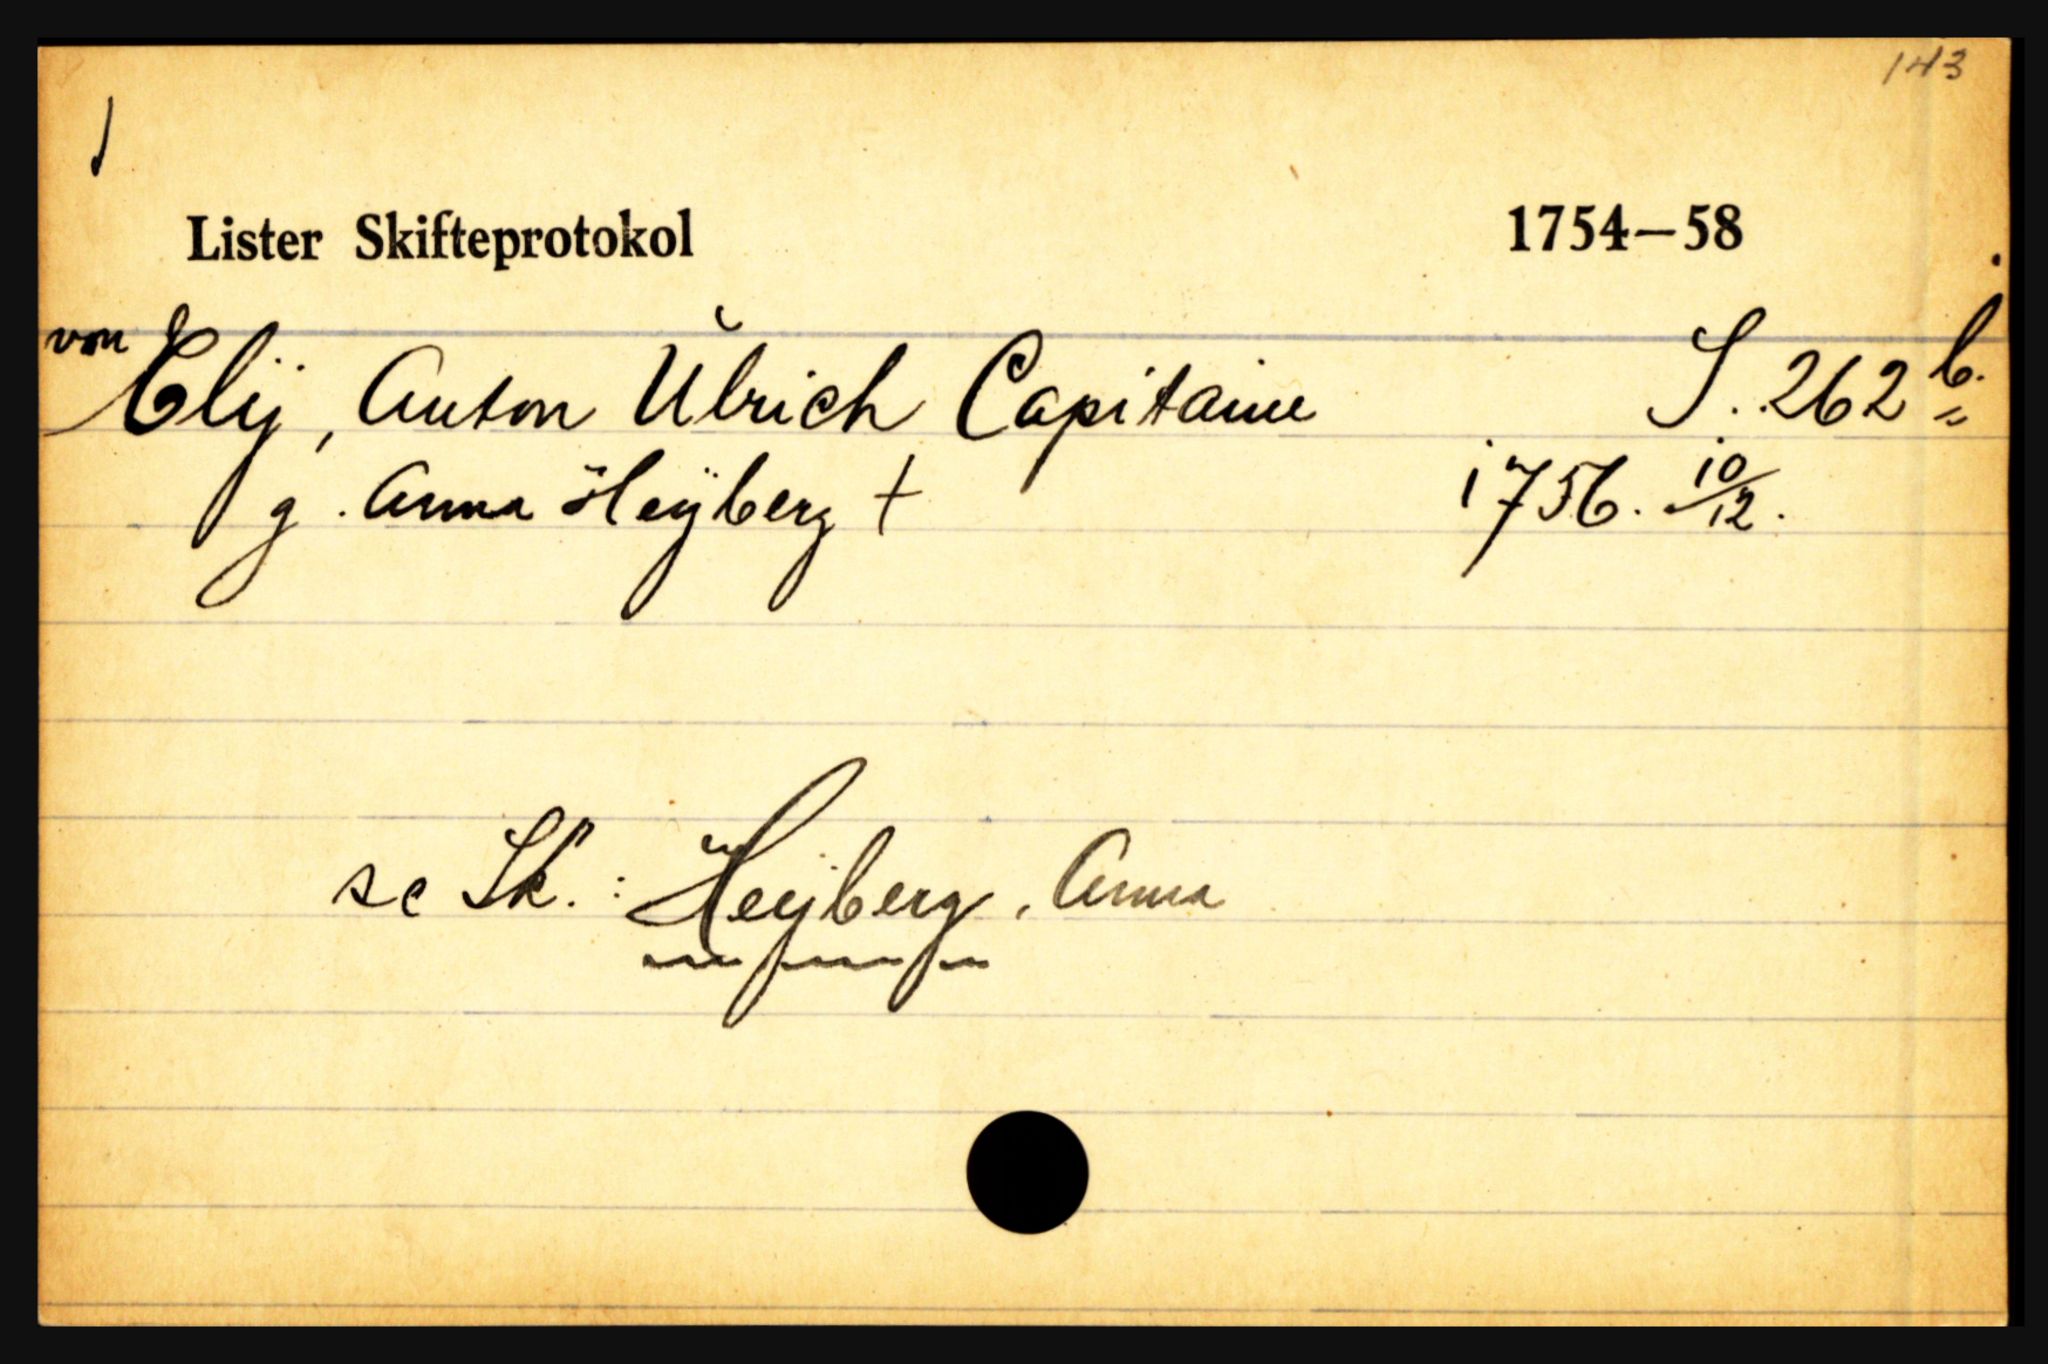 143
Lister Skifteprotokol 1754—58
von Elij, Anton Ulrich Capitaine S. 262 b.
g. Anna Heÿberg + 1756. 10/12.
se Sk.: Heÿberg, Anna